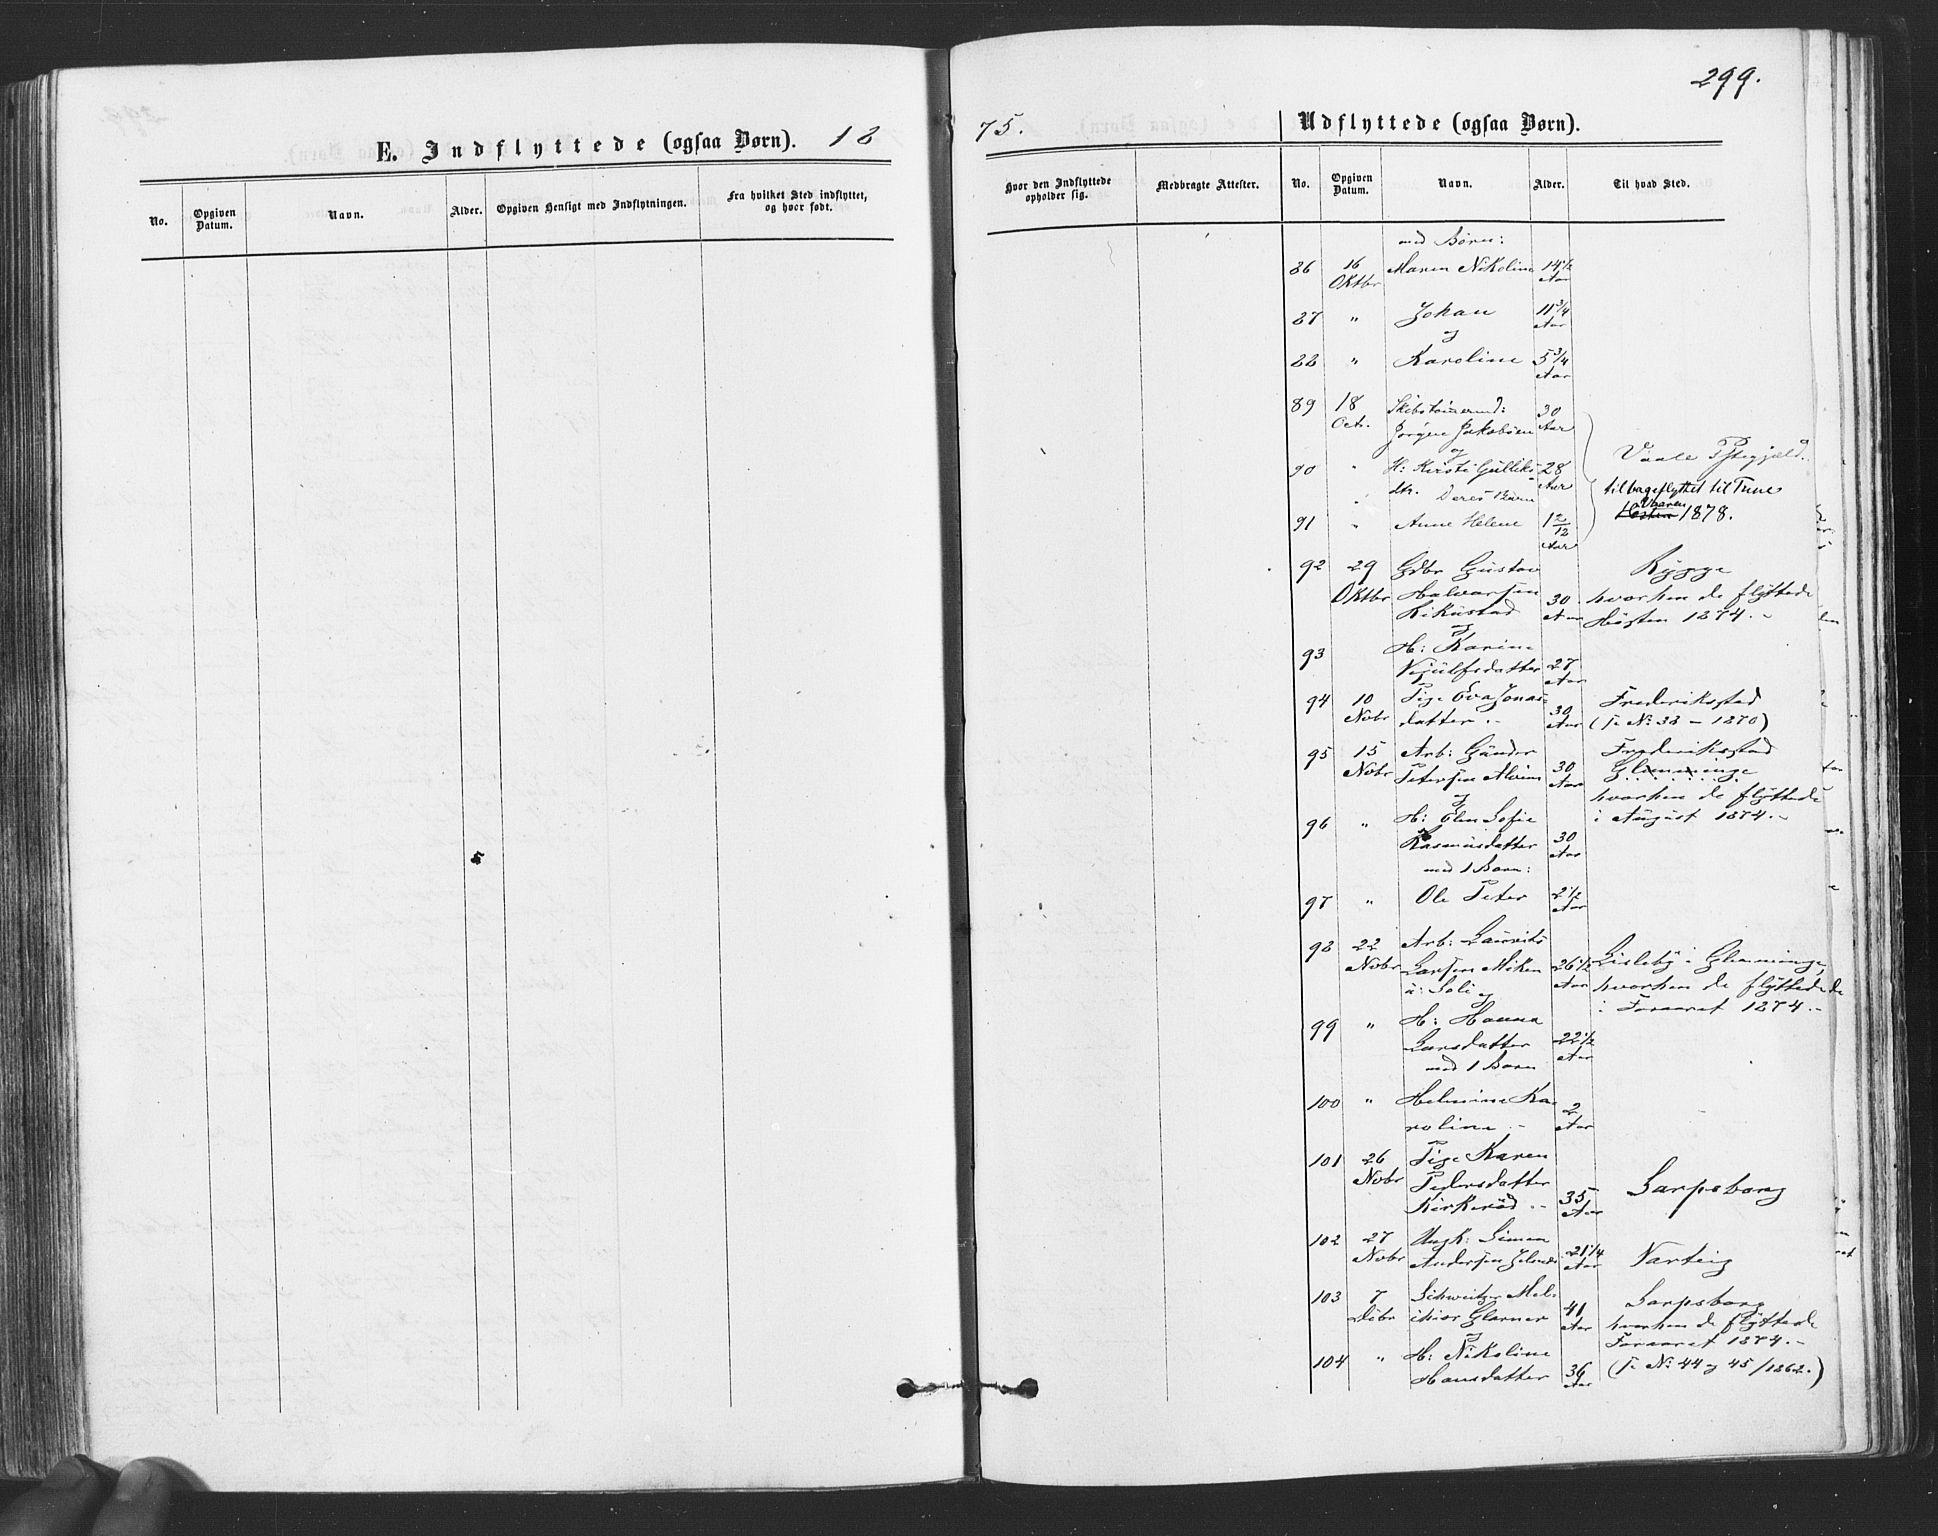 299.
E. Indflyttede (ogsaa Børn). 18
75.
Udflyttede (ogsaa Børn).
No.
Opgiven Datum.
Navn.
Alder.
Opgiven Hensigt med Indflytningen.
Fra hvilket Sted indflyttet, og hvor født.
Hvor den Indflyttede opholder sig.
Medbragte Attester.
No.
Opgiven Datum.
Navn.
Alder.
Til hvad Sted.
med Børn:
86 16 Maren Nikoline 14 1/2
Oktbr Aar
87 " Johan 11 3/4
og Aar
88 " Karoline 5 3/4
Aar
89 18 30
Octr. Jørgen Jakobsen Aar
og
90 " H: Kirsti Gulliks- 28 Vaale Præstegjæld.
dtr. Deres Barn Aar tilbageflyttet til Tune
Vaaren
91 " Anne Helene 1 2/12 Høsten 1878.
Aar
92 29 Gdbr Gustav Rygge
Oktbr Halvorsen 30 hvorhen de flyttede
Rikustad Aar Høsten 1874.-
og
93 H: Karine
27
Aar
94 10 Pige Eva Jonas- Frederiksstad
Novbr datter.- 30 Aar (I. No: 38 - 1870)
95 15 Arb: Gunder Frederiksstad
Novbr Petersen Alvim 30 Glemminge
og Aar hvorhen de flyttede
96 " H: Elen Sofie i August 1874.-
Rasmusdatter 30
med 1 Barn: Aar
97 " Ole Peter 2 1/2
Aar
98 22 Arb: Laurits
Novbr Larsen Moken 26 1/2 Lisleby i Glemminge,
u: Soli Aar hvorhen de flyttede
og i Foraaret 1874.-
99 " H: Hanna
Larsdatter 22 1/2
med 1 Barn Aar
100 " Helmine Ka- 2
roline.- Aar
101 26 Pige Karen
Novbr Pedersdatter Sarpsborg
Kirkerød.- 35 Aar
102 27 Ungk: Simen
Novbr Andersen 21 1/4 Aar Varteig
103 7 Schweitzer Mel- Sarpsborg
Dsbr chior Glarner 41 Aar hvorhen de flyttede
og Foraaret 1874.-
104 " H: Nikoline (I. No: 44 og 45/1862.)
Hansdatter 36
Aar